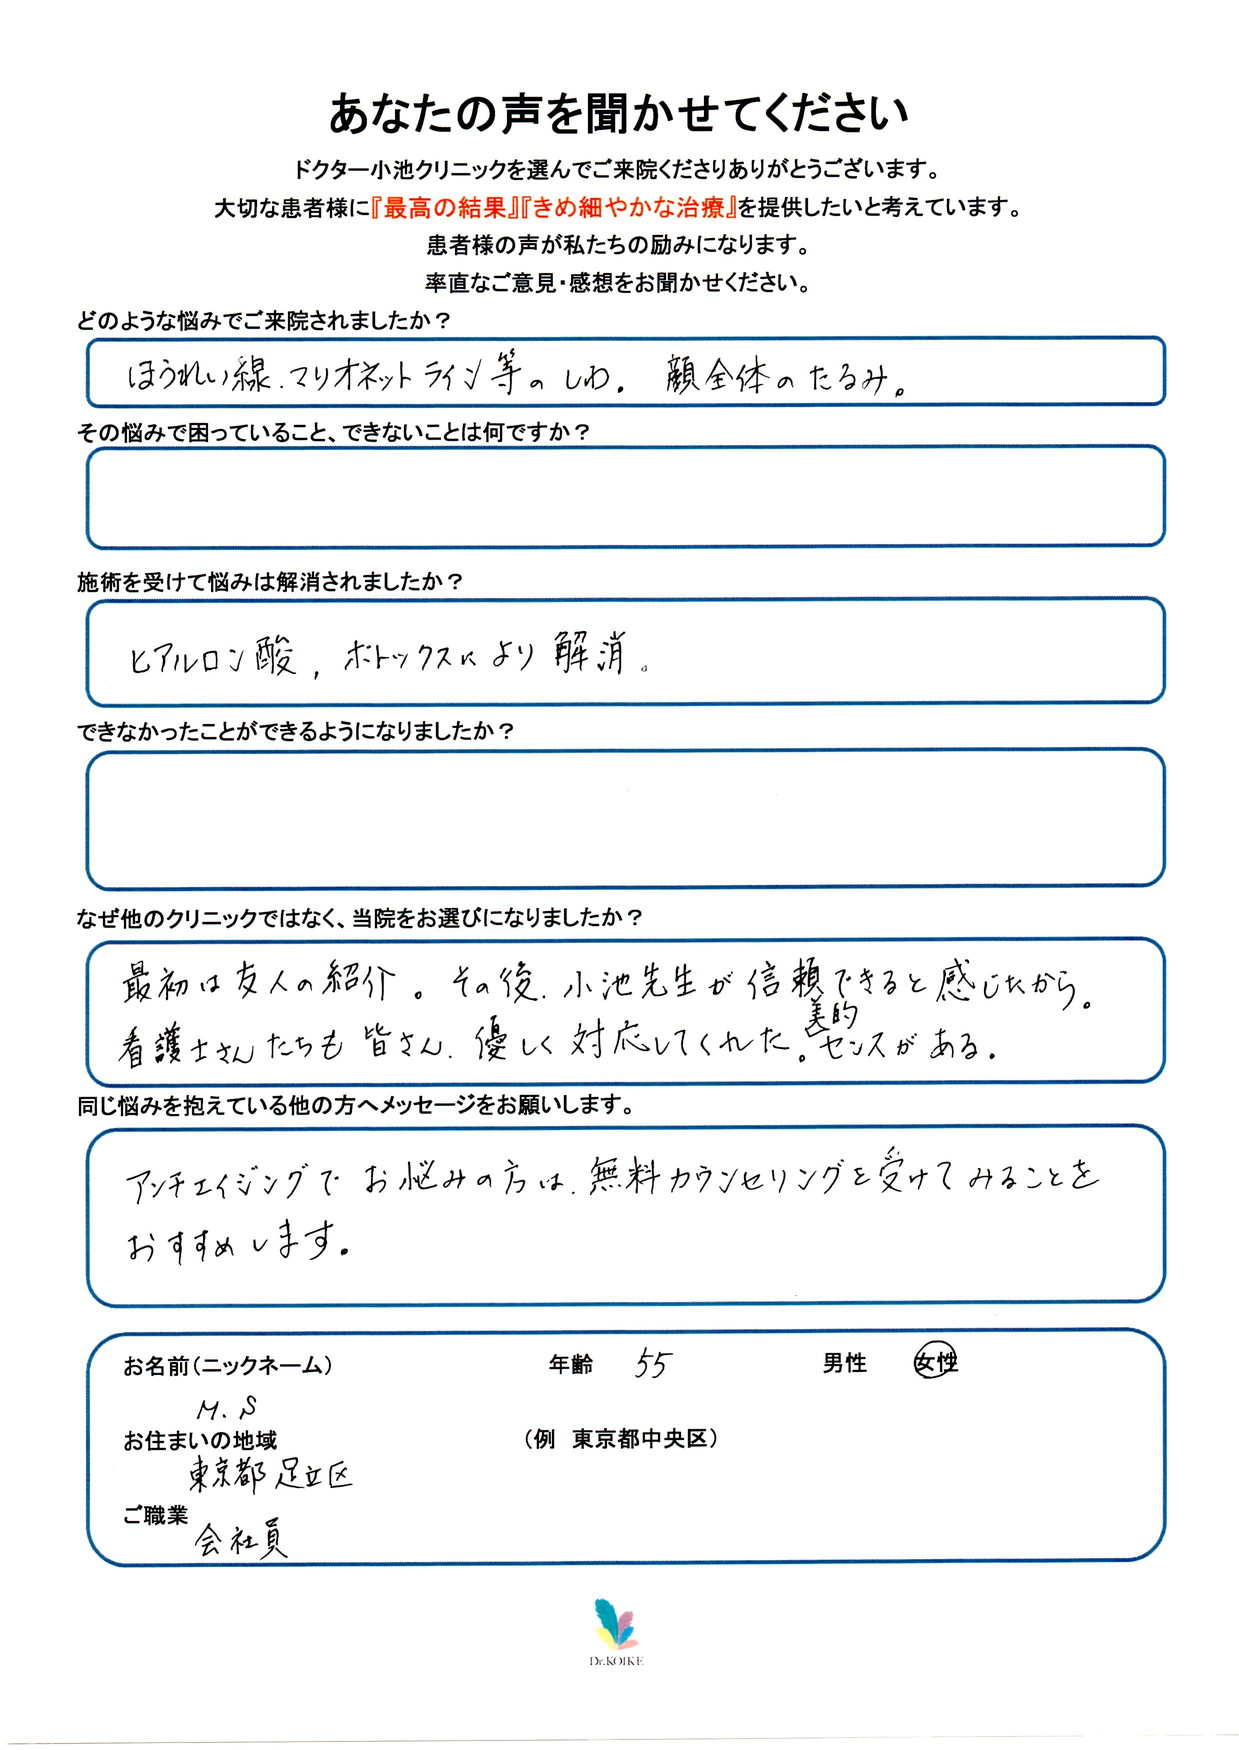 あなたの声を聞かせてください
ドクター小池クリニックを選んでご来院くださりありがとうございます。
大切な患者様に『最高の結果』『きめ細やかな治療』を提供したいと考えています。
患者様の声が私たちの励みになります。
率直なご意見・感想をお聞かせください。
どのような悩みでご来院されましたか？
ほうれい線、マリオネットライン等のしわ。 顔全体のたるみ。
その悩みで困っていること、できないことは何ですか？
施術を受けて悩みは解消されましたか？
ヒアルロン酸，ボトックスにより解消。
できなかったことができるようになりましたか？
なぜ他のクリニックではなく、当院をお選びになりましたか？
最初は友人の紹介。その後、小池先生が信頼できると感じたから。
看護士さんたちも皆さん、優しく対応してくれた。美的センスがある。
同じ悩みを抱えている他の方へメッセージをお願いします。
アンチエイジングでお悩みの方は、無料カウンセリングを受けてみることを
おすすめします。
お名前（ニックネーム） 年齢 55 男性 女性
M.S
お住まいの地域 （例 東京都中央区）
東京都足立区
ご職業
会社員
Dr.KOIKE